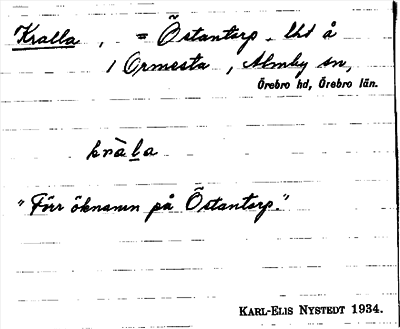 Kralla, = Östantorp, lhd å
1 Ormesta, Almby sn,
Örebro hd, Örebro län.
kràla
"Förr öknamn på Östantorp."
KARL-ELIS NYSTEDT 1934.